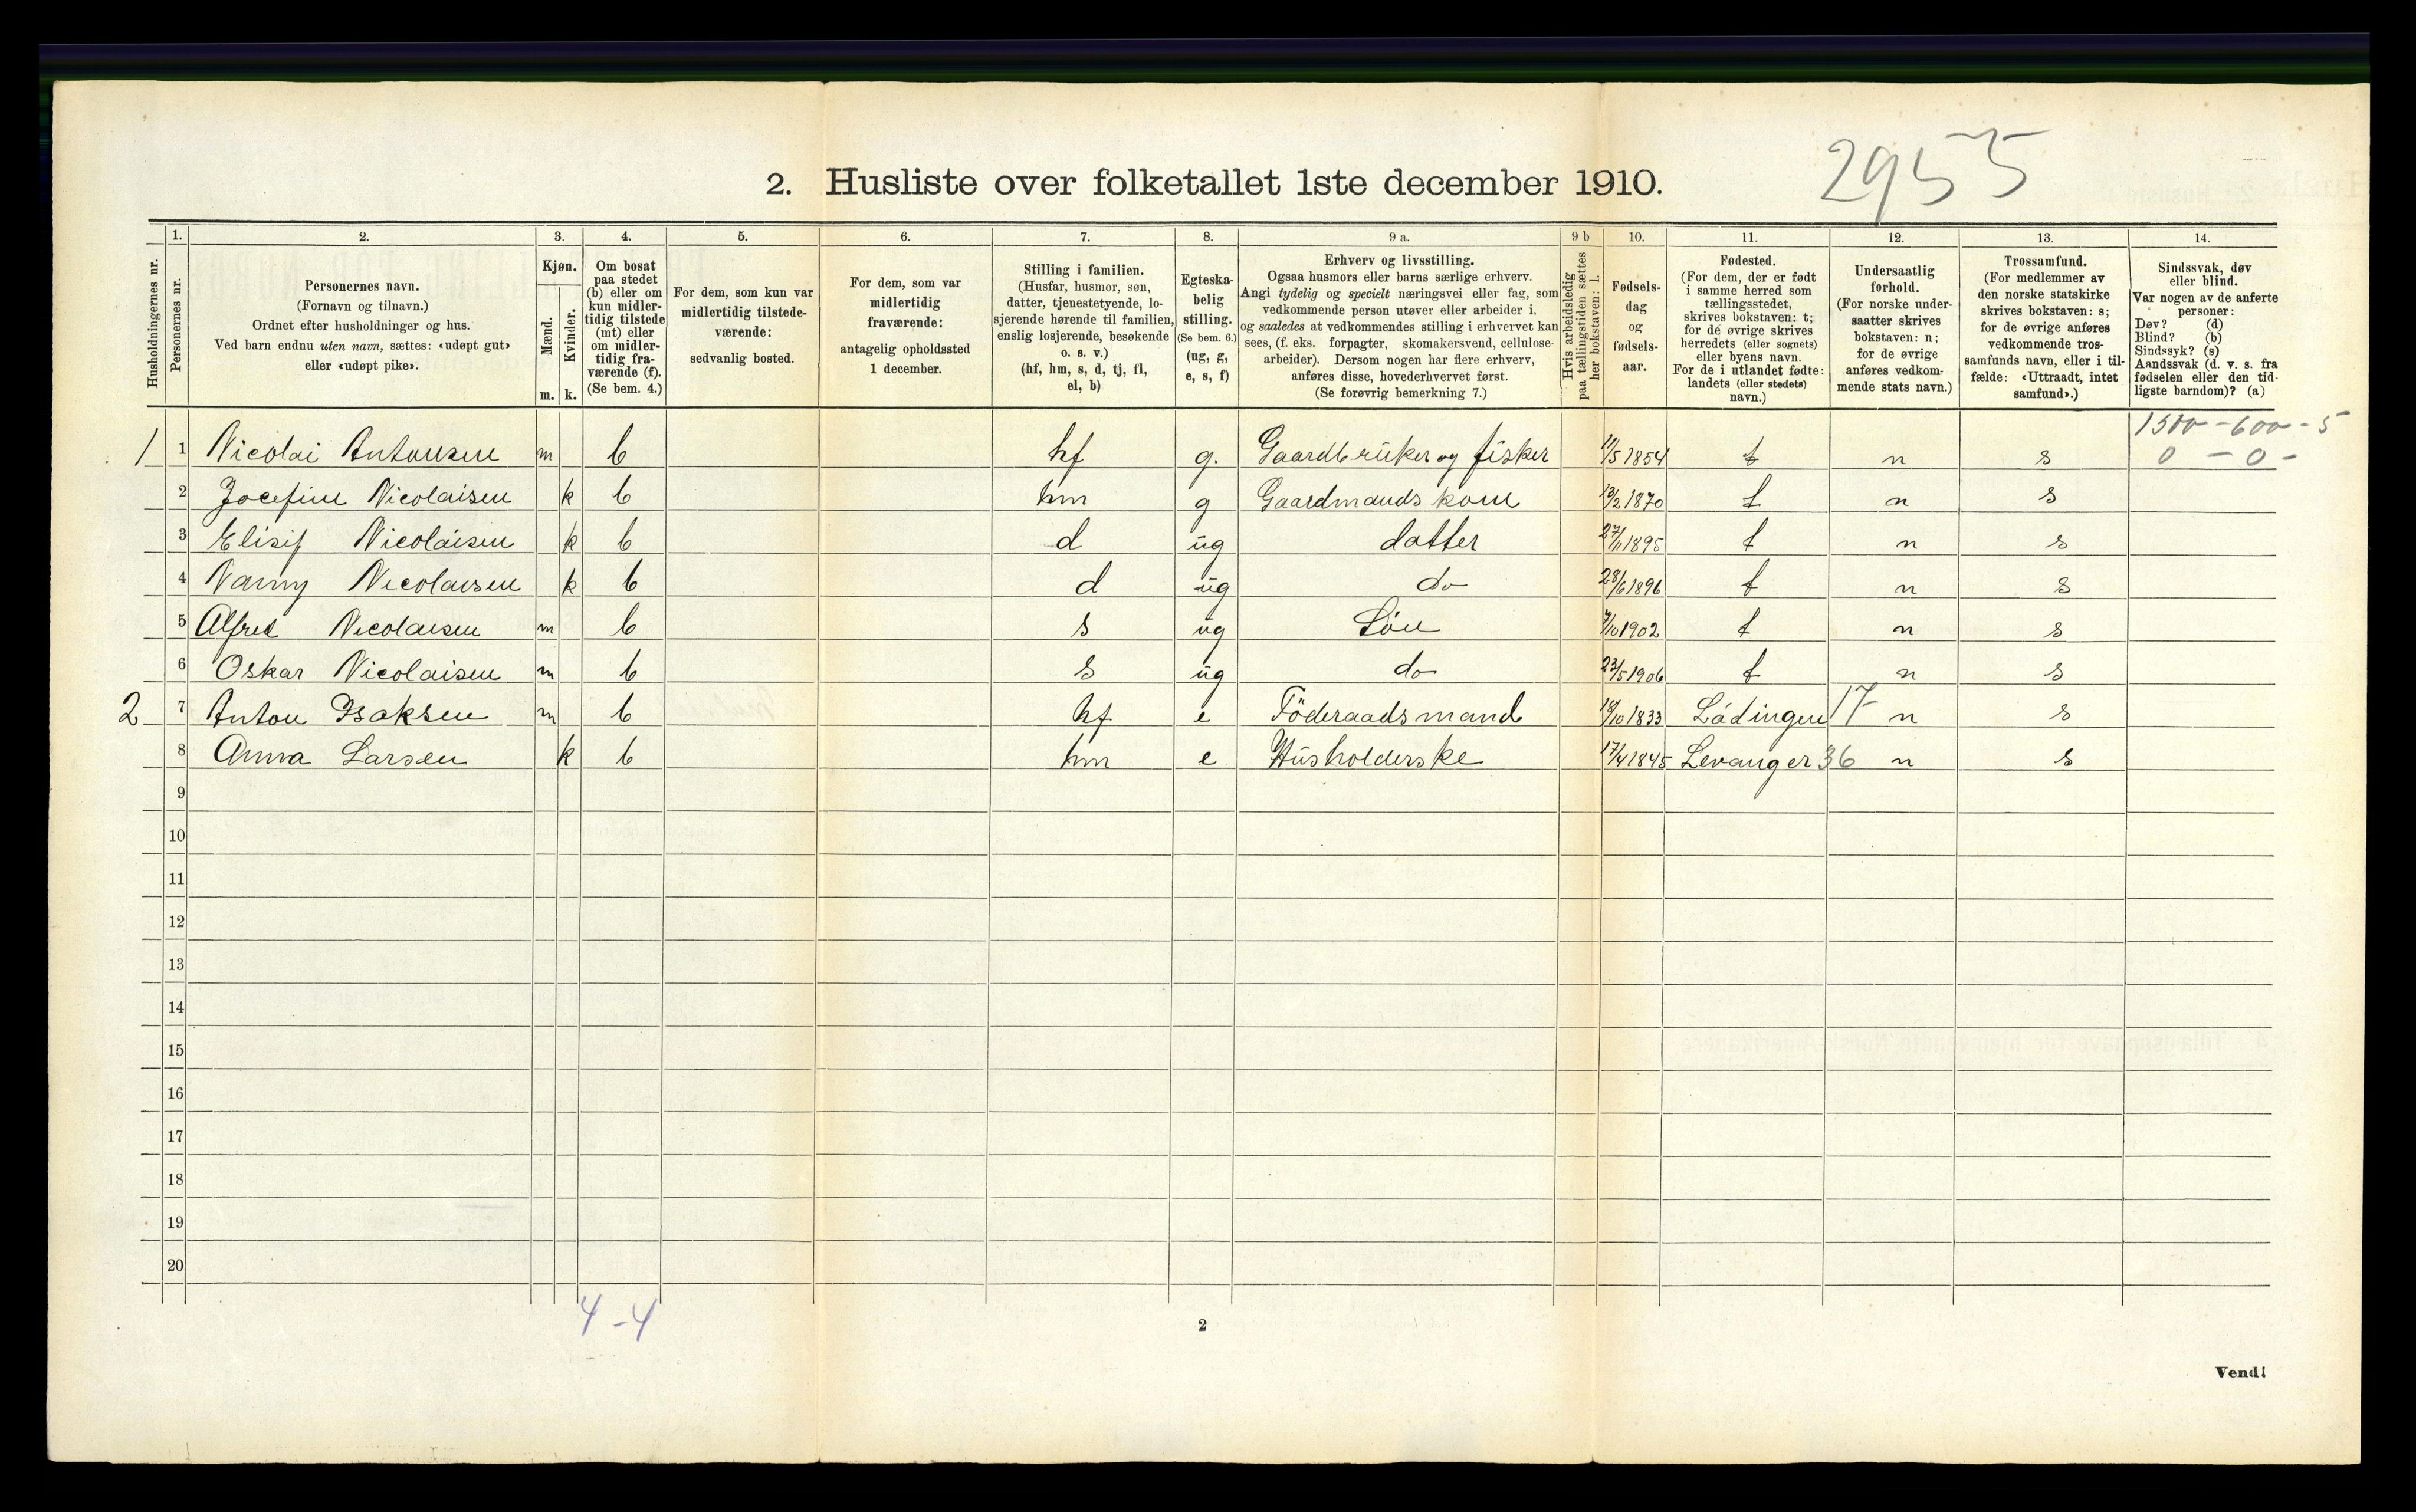 2955
2. Husliste over folketallet 1ste december 1910.
Husholdningernes nr.
1.
Personernes nr.
2.
Personernes navn.
(Fornavn og tilnavn.)
Ordnet efter husholdninger og hus.
Ved barn endnu uten navn, sættes: «udøpt gut»
eller «udøpt pike».
3.
Kjøn.
Mænd.
Kvinder.
m. k.
4.
Om bosat
paa stedet
(b) eller om
kun midler-
tidig tilstede
(mt) eller
om midler-
tidig fra-
værende (f).
(Se bem. 4.)
5.
For dem, som kun var
midlertidig tilstede-
værende:
sedvanlig bosted.
6.
For dem, som var
midlertidig
fraværende:
antagelig opholdssted
1 december.
7.
Stilling i familien.
(Husfar, husmor, søn,
datter, tjenestetyende, lo-
sjerende hørende til familien,
enslig losjerende, besøkende
o. s. v.)
(hf, hm, s, d, tj, fl,
el, b)
8.
Egteska-
belig
stilling.
(Se bem. 6.)
(ug, g,
e, s, f)
9 a.
Erhverv og livsstilling.
Ogsaa husmors eller barns særlige erhverv.
Angi tydelig og specielt næringsvei eller fag, som
vedkommende person utøver eller arbeider i,
og saaledes at vedkommendes stilling i erhvervet kan
sees, (f. eks. forpagter, skomakersvend, cellulose-
arbeider). Dersom nogen har flere erhverv,
anføres disse, hovederhvervet først.
(Se forøvrig bemerkning 7.)
9 b
Hvis arbeidsledig
paa tællingstiden sættes
her bokstaven: l.
10.
Fødsels-
dag
og
fødsels-
aar.
11.
Fødested.
(For dem, der er født
i samme herred som
tællingsstedet,
skrives bokstaven: t;
for de øvrige skrives
herredets (eller sognets)
eller byens navn.
For de i utlandet fødte:
landets (eller stedets)
navn.)
12.
Undersaatlig
forhold.
(For norske under-
saatter skrives
bokstaven: n;
for de øvrige
anføres vedkom-
mende stats navn.)
13.
Trossamfund.
(For medlemmer av
den norske statskirke
skrives bokstaven: s;
for de øvrige anføres
vedkommende tros-
samfunds navn, eller i til-
fælde: «Uttraadt, intet
samfund».)
14.
Sindssvak, døv
eller blind.
Var nogen av de anførte
personer:
Døv? (d)
Blind? (b)
Sindssyk? (s)
Aandssvak (d. v. s. fra
fødselen eller den tid-
ligste barndom)? (a)
1500 - 600 - 5
1 1 Nicolai Antonsen m b hf g. Gaardbruker og fisker 11/5 1854 t n s 0 - 0 -
2 Josefine Nicolaisen k b hm g Gaardmands kone 13/2 1870 t n s
3 Elisif Nicolaisen k b d ug datter 27/11 1895 t n s
4 Nanny Nicolaisen k b d ug do 28/6 1896 t n s
5 Alfred Nicolaisen m b s ug Sön 7/10 1902 t n s
6 Oskar Nicolaisen m b s ug do 23/5 1906 t n s
2 7 Anton Isaksen m b hf e Föderaadsmand 18/10 1833 Lódingen 17 n s
8 Anna Larsen k b hm e Husholderske 17/4 1845 Levanger 36 n s
9
10
11
12
13
14
15
16
17
18
19
20
4 - 4
2
Vend!